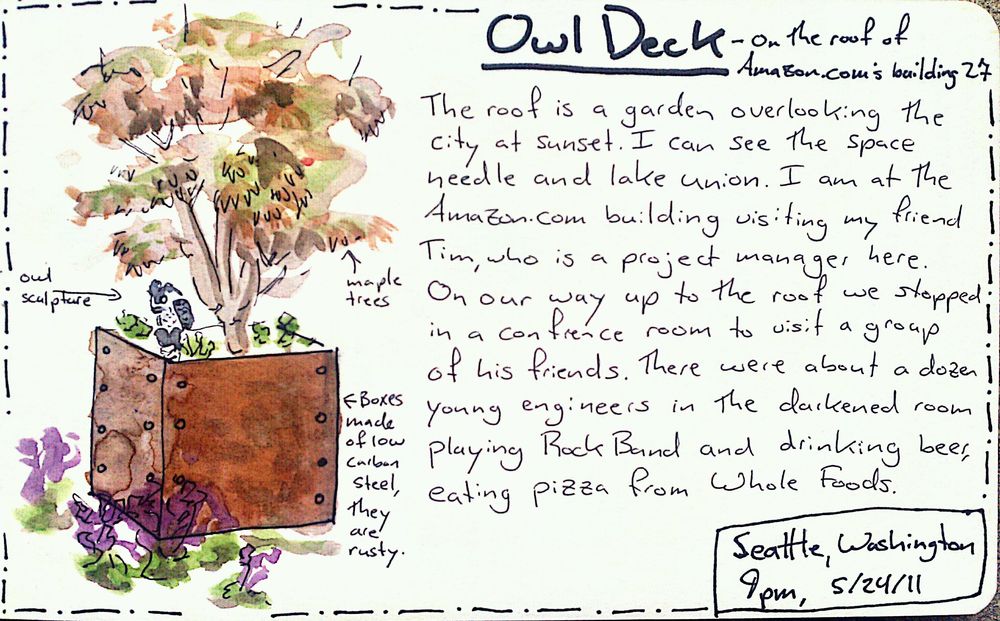 Owl Deck - on the roof of
Amazon.com's building 27
The roof is a garden overlooking the
city at sunset. I can see the space
needle and lake union. I am at the
Amazon.com building visiting my friend
Tim, who is a project manager here.
On our way up to the roof we stopped
in a confrence room to visit a group
of his friends. There were about a dozen
young engineers in the darkened room
playing Rock Band and drinking beer,
eating pizza from Whole Foods.
owl
sculpture
maple
trees
Boxes
made
of low
carbon
steel,
they
are
rusty.
Seattle, Washington
9pm, 5/24/11